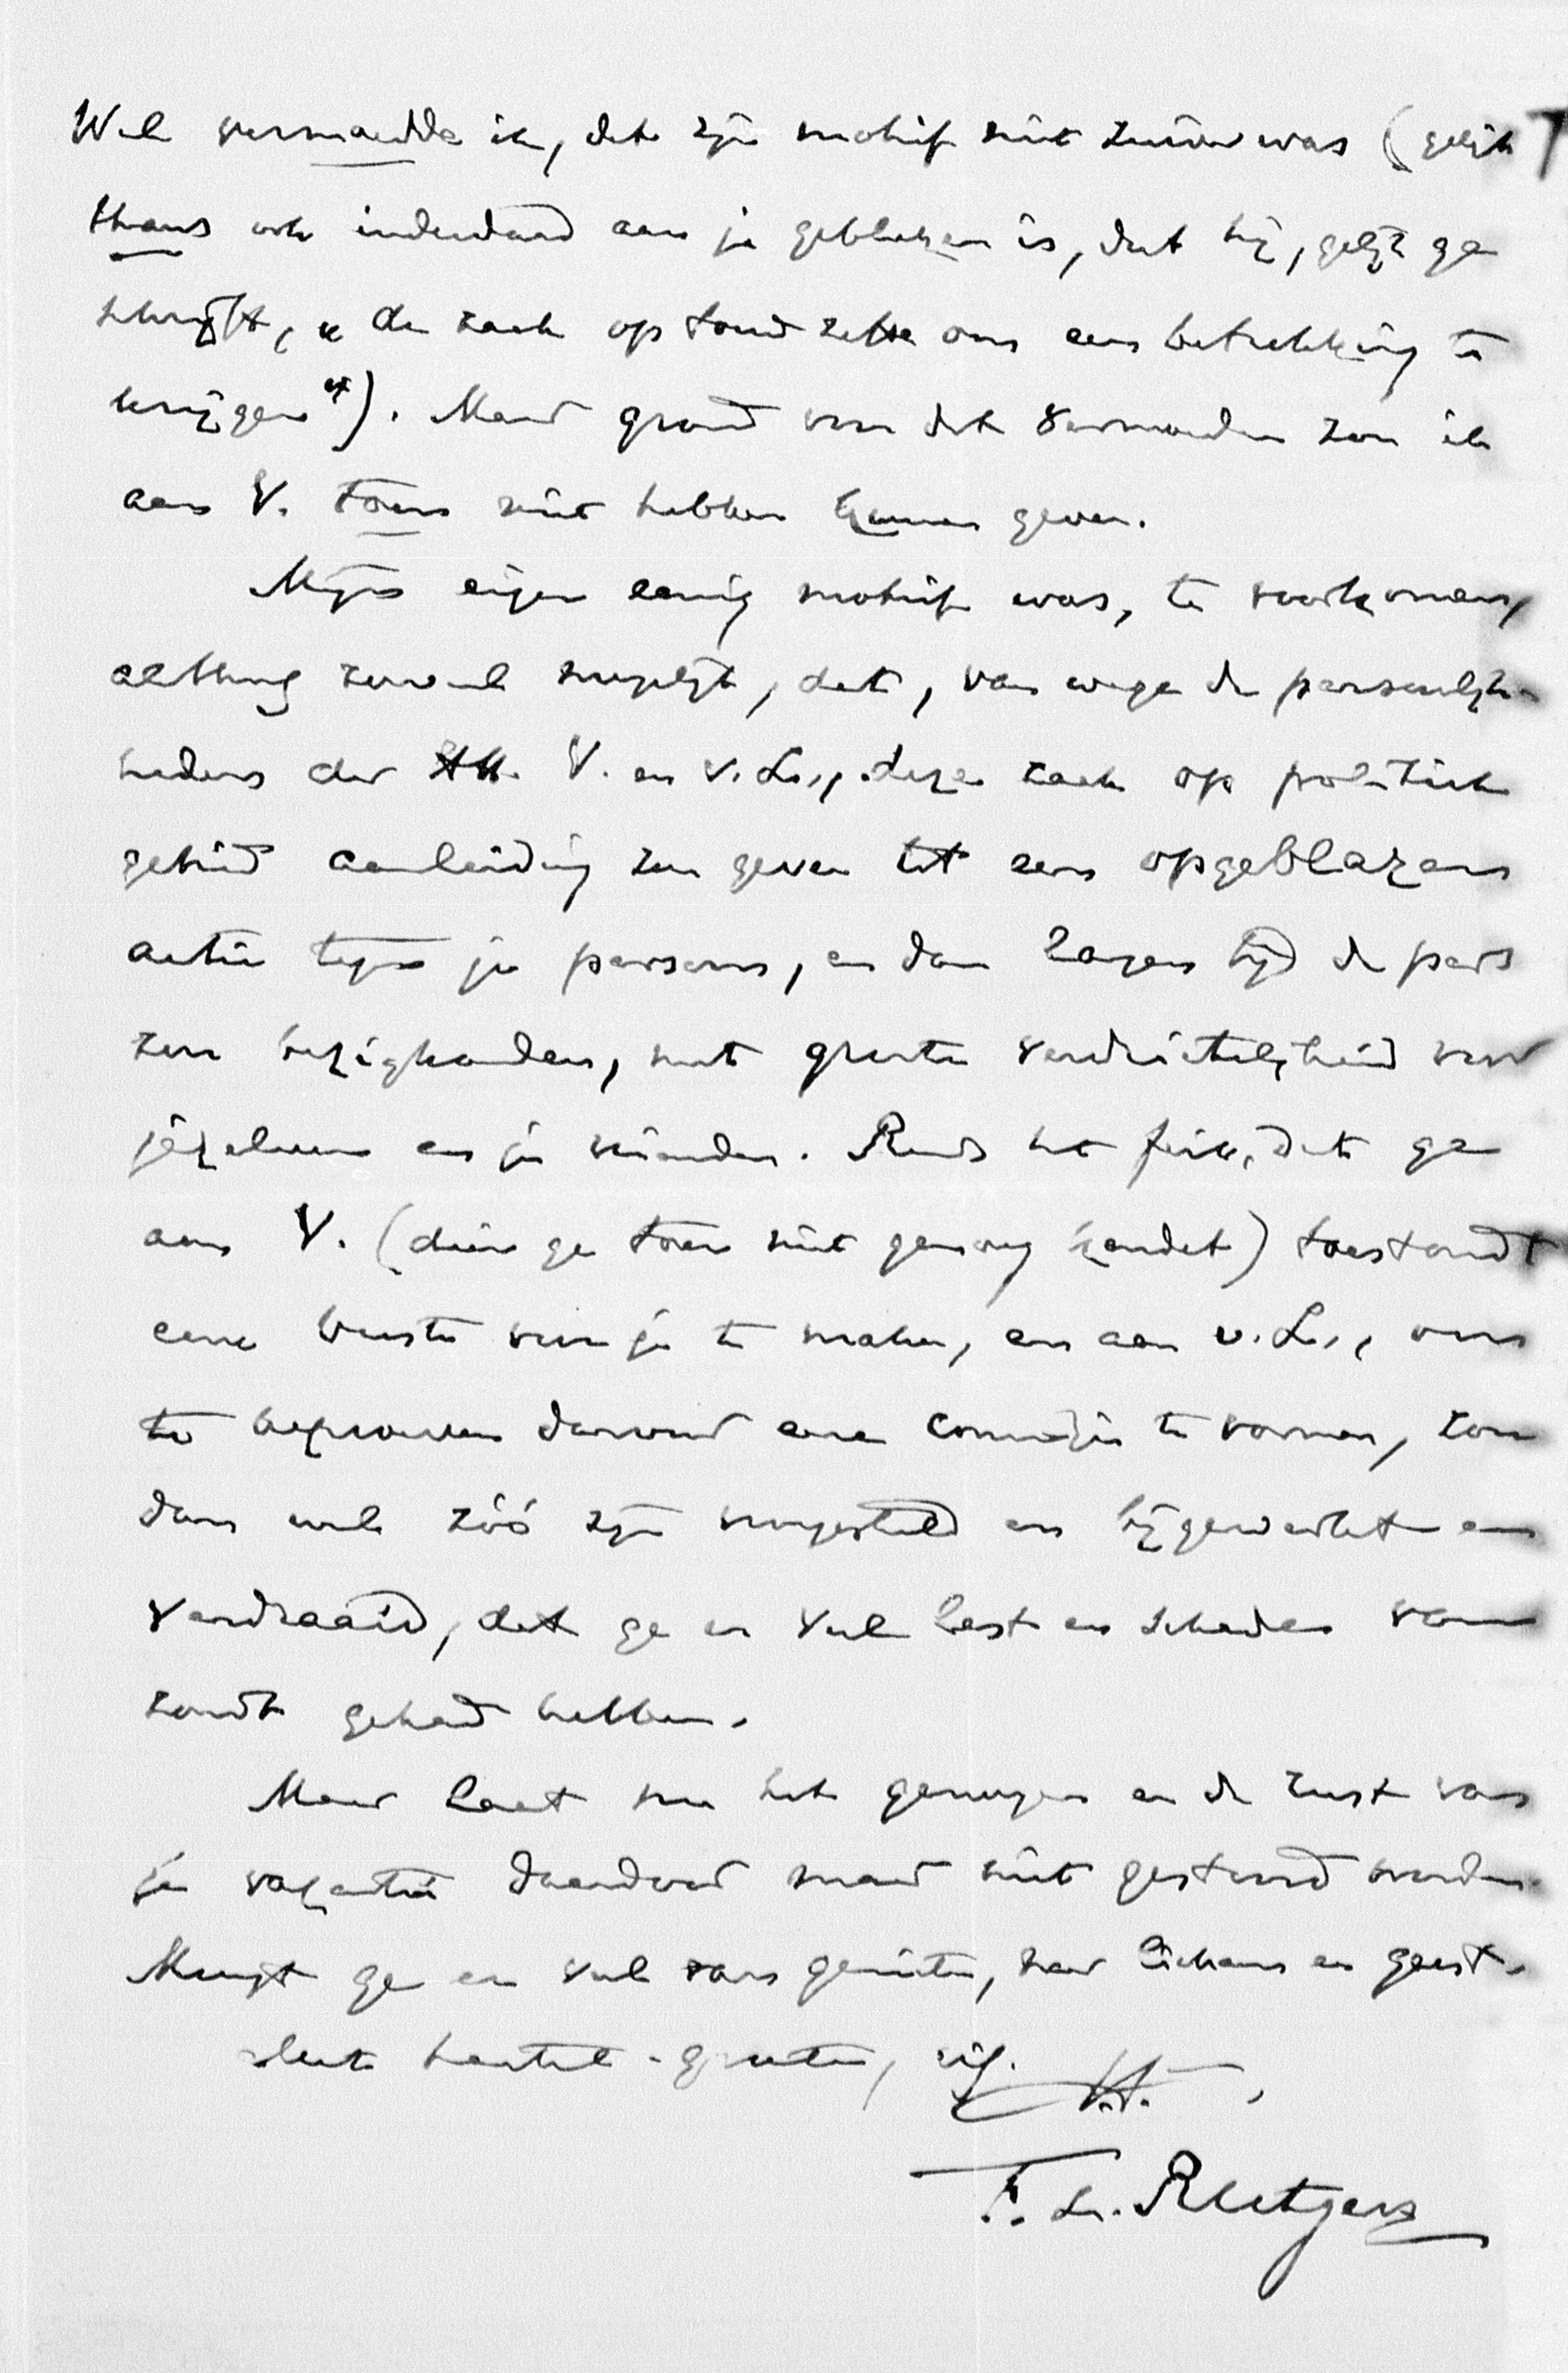 Wel vermoedde ik, dat zijn motief niet zuiver was (gelijk
thans ook inderdaad aan je gebleken is, dat hij, gelijk ge
schrijft, de zaak op touw zette om een betrekking te
krijgen *). Maar grond voor dat vermoeden zou ik
aan V. toen niet hebben kunnen geven.
Mijn eigen eenig motief was, te voorkomen,
althans zooveel mogelijk, dat, van wege de persoonlijk-
heden der HH. V. en v. L., deze zaak op politiek
gebied aanleiding zou geven tot een opgeblazen
actie tegen je persoon, en dan langen tijd de pers
zou bezighouden, met groote verdrietelijkheid voor
jezelven en je vrienden. Reeds het feit, dat ge
aan V. (dien ge toen niet genoeg kendet) toestondt
eene buste van je te maken, en aan v. L., om
te beproeven daarvoor eene commissie te vormen, zou
dan wel zóó zijn voorgesteld en bijgewerkt en
verdraaid, dat ge er veel last en schade van
zoudt gehad hebben.
Maar laat nu het genoegen en de rust van
je vacantie daardoor maar niet gestoord worden.
Moogt ge er veel van genieten, naar lichaam en geest.
Met hartel. groeten, 
F. L. Rutgers